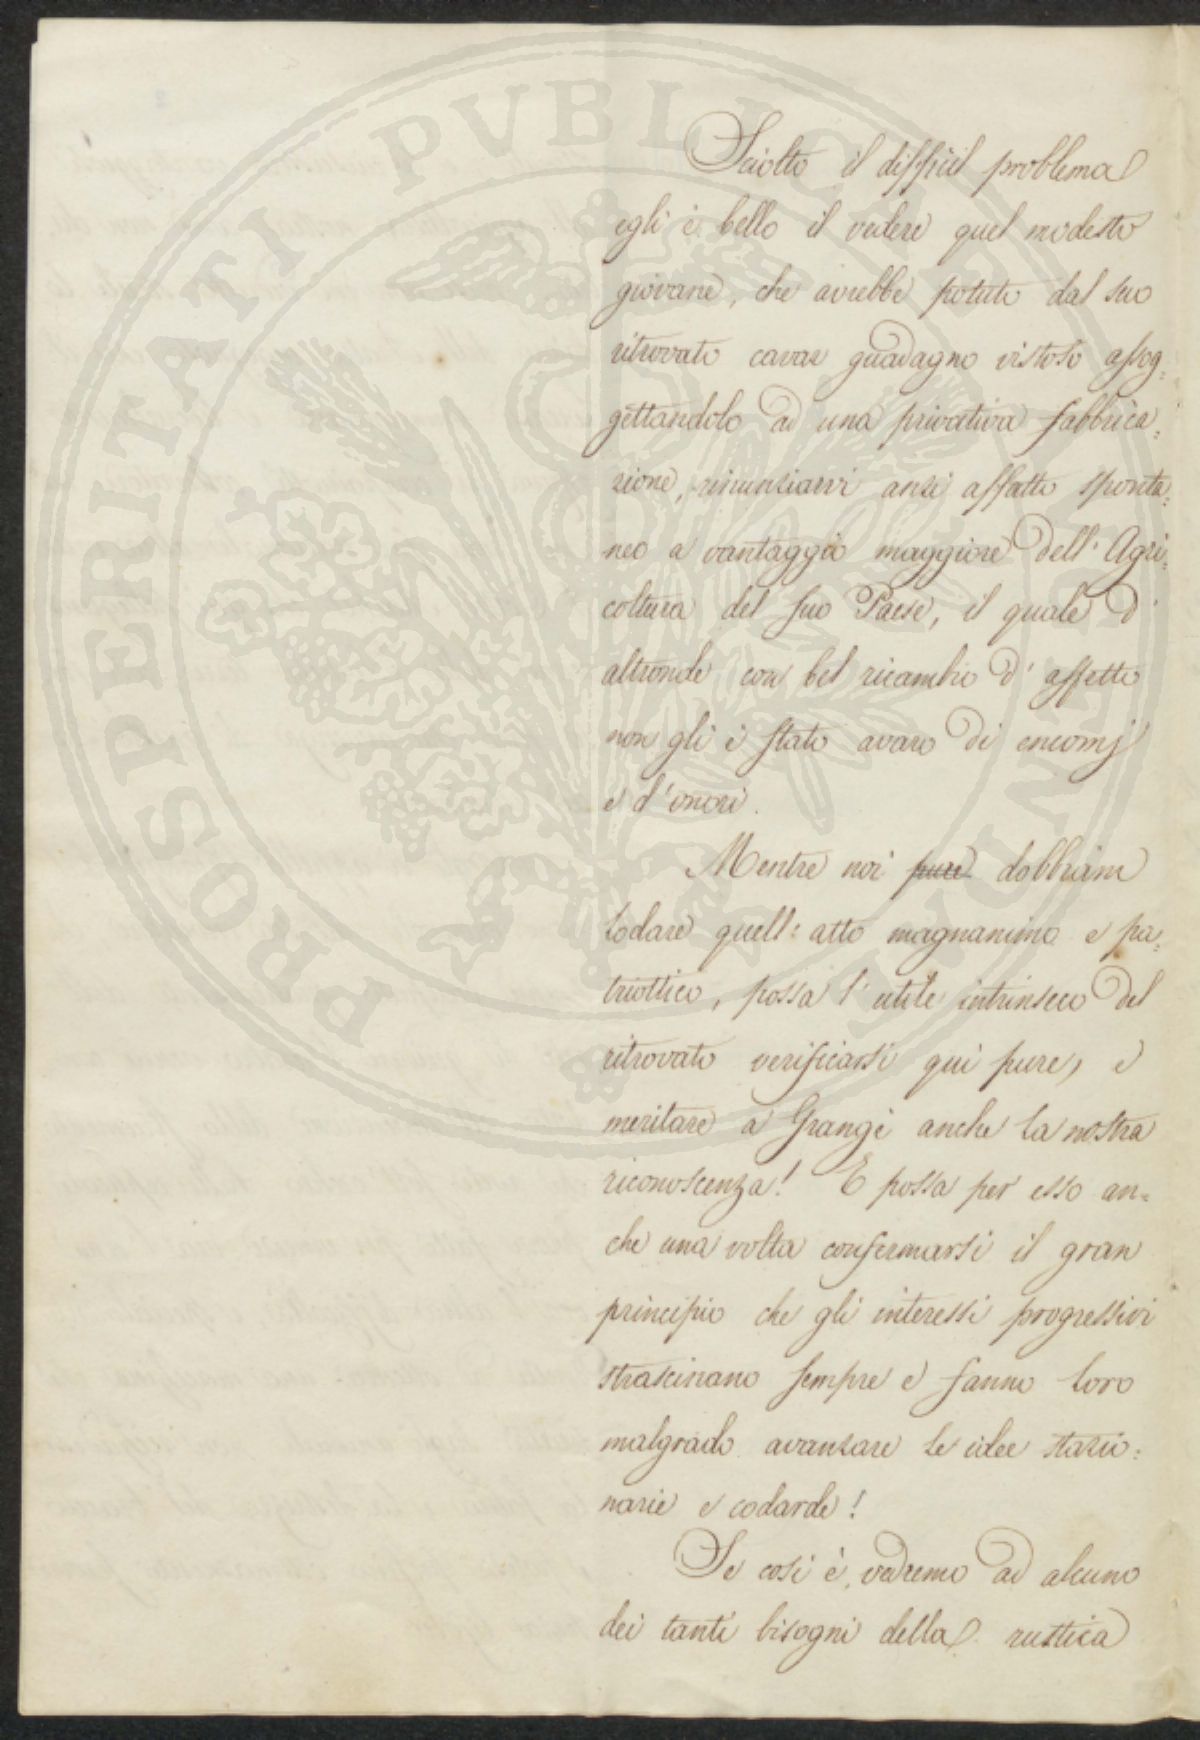 Sciolto il difficil problema
egli è bello il vedere quel modesto
giovane, che avrebbe potuto dal suo
ritrovato cavar guadagno vistoso assog=
gettandolo ad una privativa fabbrica=
zione, rinunziarvi anzi affatto sponta=
neo a vantaggio maggiore dell'Agri=
coltura del suo Paese, il quale d'
altronde con bel ricambio d'affetto
non gli è stato avaro di encomj
e d'onori.
Mentre noi pure dobbiam
lodare quell'atto magnanimo e pa=
triottico, possa l'utile intrinseco del
ritrovato verificarsi qui pure, e
meritare a Grangé anche la nostra
riconoscenza! E possa per esso an=
che una volta confermarsi il gran
principio che gli interessi progressivi
strascinano sempre e fanno loro
malgrado avanzare le idee stazio=
narie e codarde!
Se così è, vedremo ad alcuno
dei tanti bisogni della rustica
PROSPERITATI PVBLICAE AVGENDAE